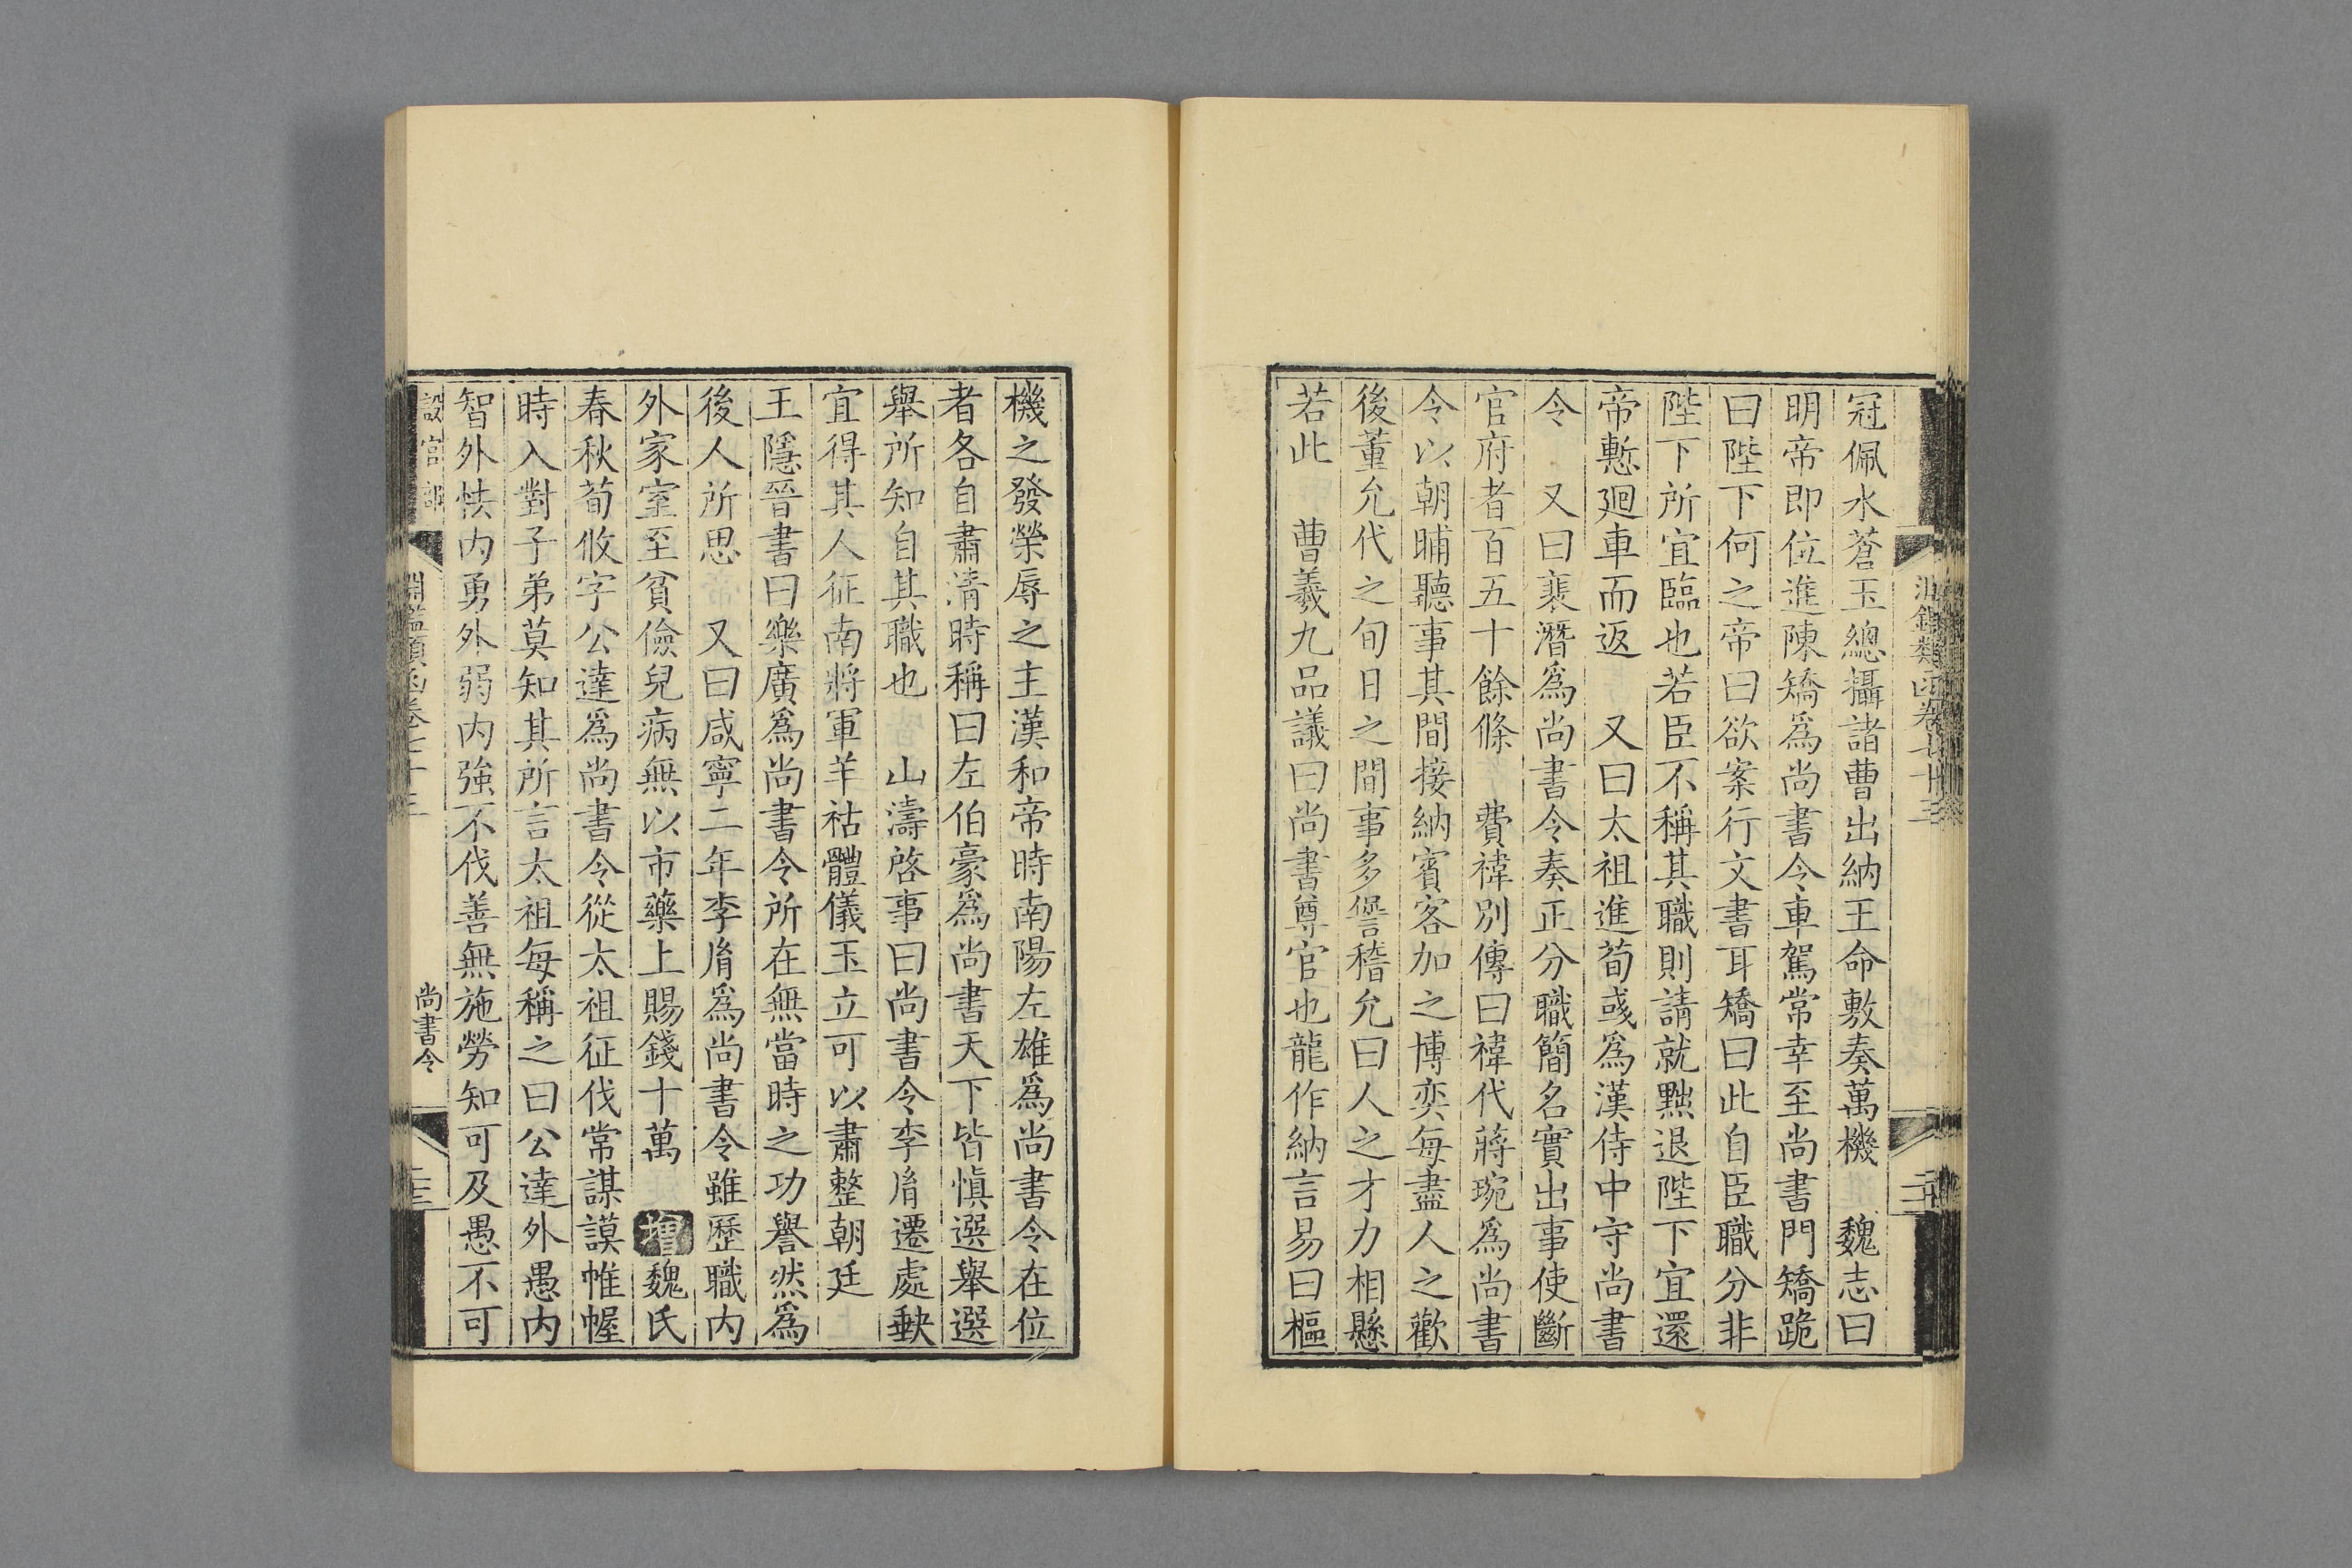 冠佩水蒼玉總攝諸曹出納王命敷奏萬機　魏志曰
明帝即位進陳矯爲尚書令車駕常幸至尚書門矯跪
曰陛下何之帝曰欲案行文書耳矯曰此自臣職分非
陛下所宜臨也若臣不稱其職則請就黜退陛下宜還
帝慙廻車而返　又曰太祖進荀彧爲漢侍中守尚書
令　又曰裴潛爲尚書令奏正分職簡名實出事使斷
官府者百五十餘條　費禕別傳曰禕代蔣琬爲尚書
令以朝晡聽事其間接納賓客加之博奕每盡人之歡
後董允代之旬日之間事多愆稽允曰人之才力相懸
若此　曹羲九品議曰尚書尊官也龍作納言易曰樞
機之發榮辱之主漢和帝時南陽左雄爲尚書令在位
者各自肅淸時稱曰左伯豪爲尚書天下皆愼選舉選
舉所知自其職也　山濤啓事曰尚書令李胤遷處缺
宜得其人征南將軍羊祜體儀玉立可以肅整朝廷
王隱晉書曰樂廣爲尚書令所在無當時之功譽然爲
後人所思　又曰咸寧二年李胤爲尚書令雖歷職內
外家室至貧儉兒病無以市藥上賜錢十萬　增魏氏
春秋荀攸字公達爲尚書令從太祖征伐常謀謨帷幄
時入對子弟莫知其所言太祖每稱之曰公達外愚內
智外怯內勇外弱內強不伐善無施勞知可及愚不可
設官部　淵鑑類函卷七十三　尚書令　三